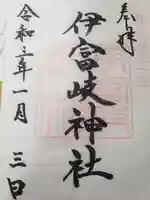 奉拝
伊富岐神社
令和三年一月三日